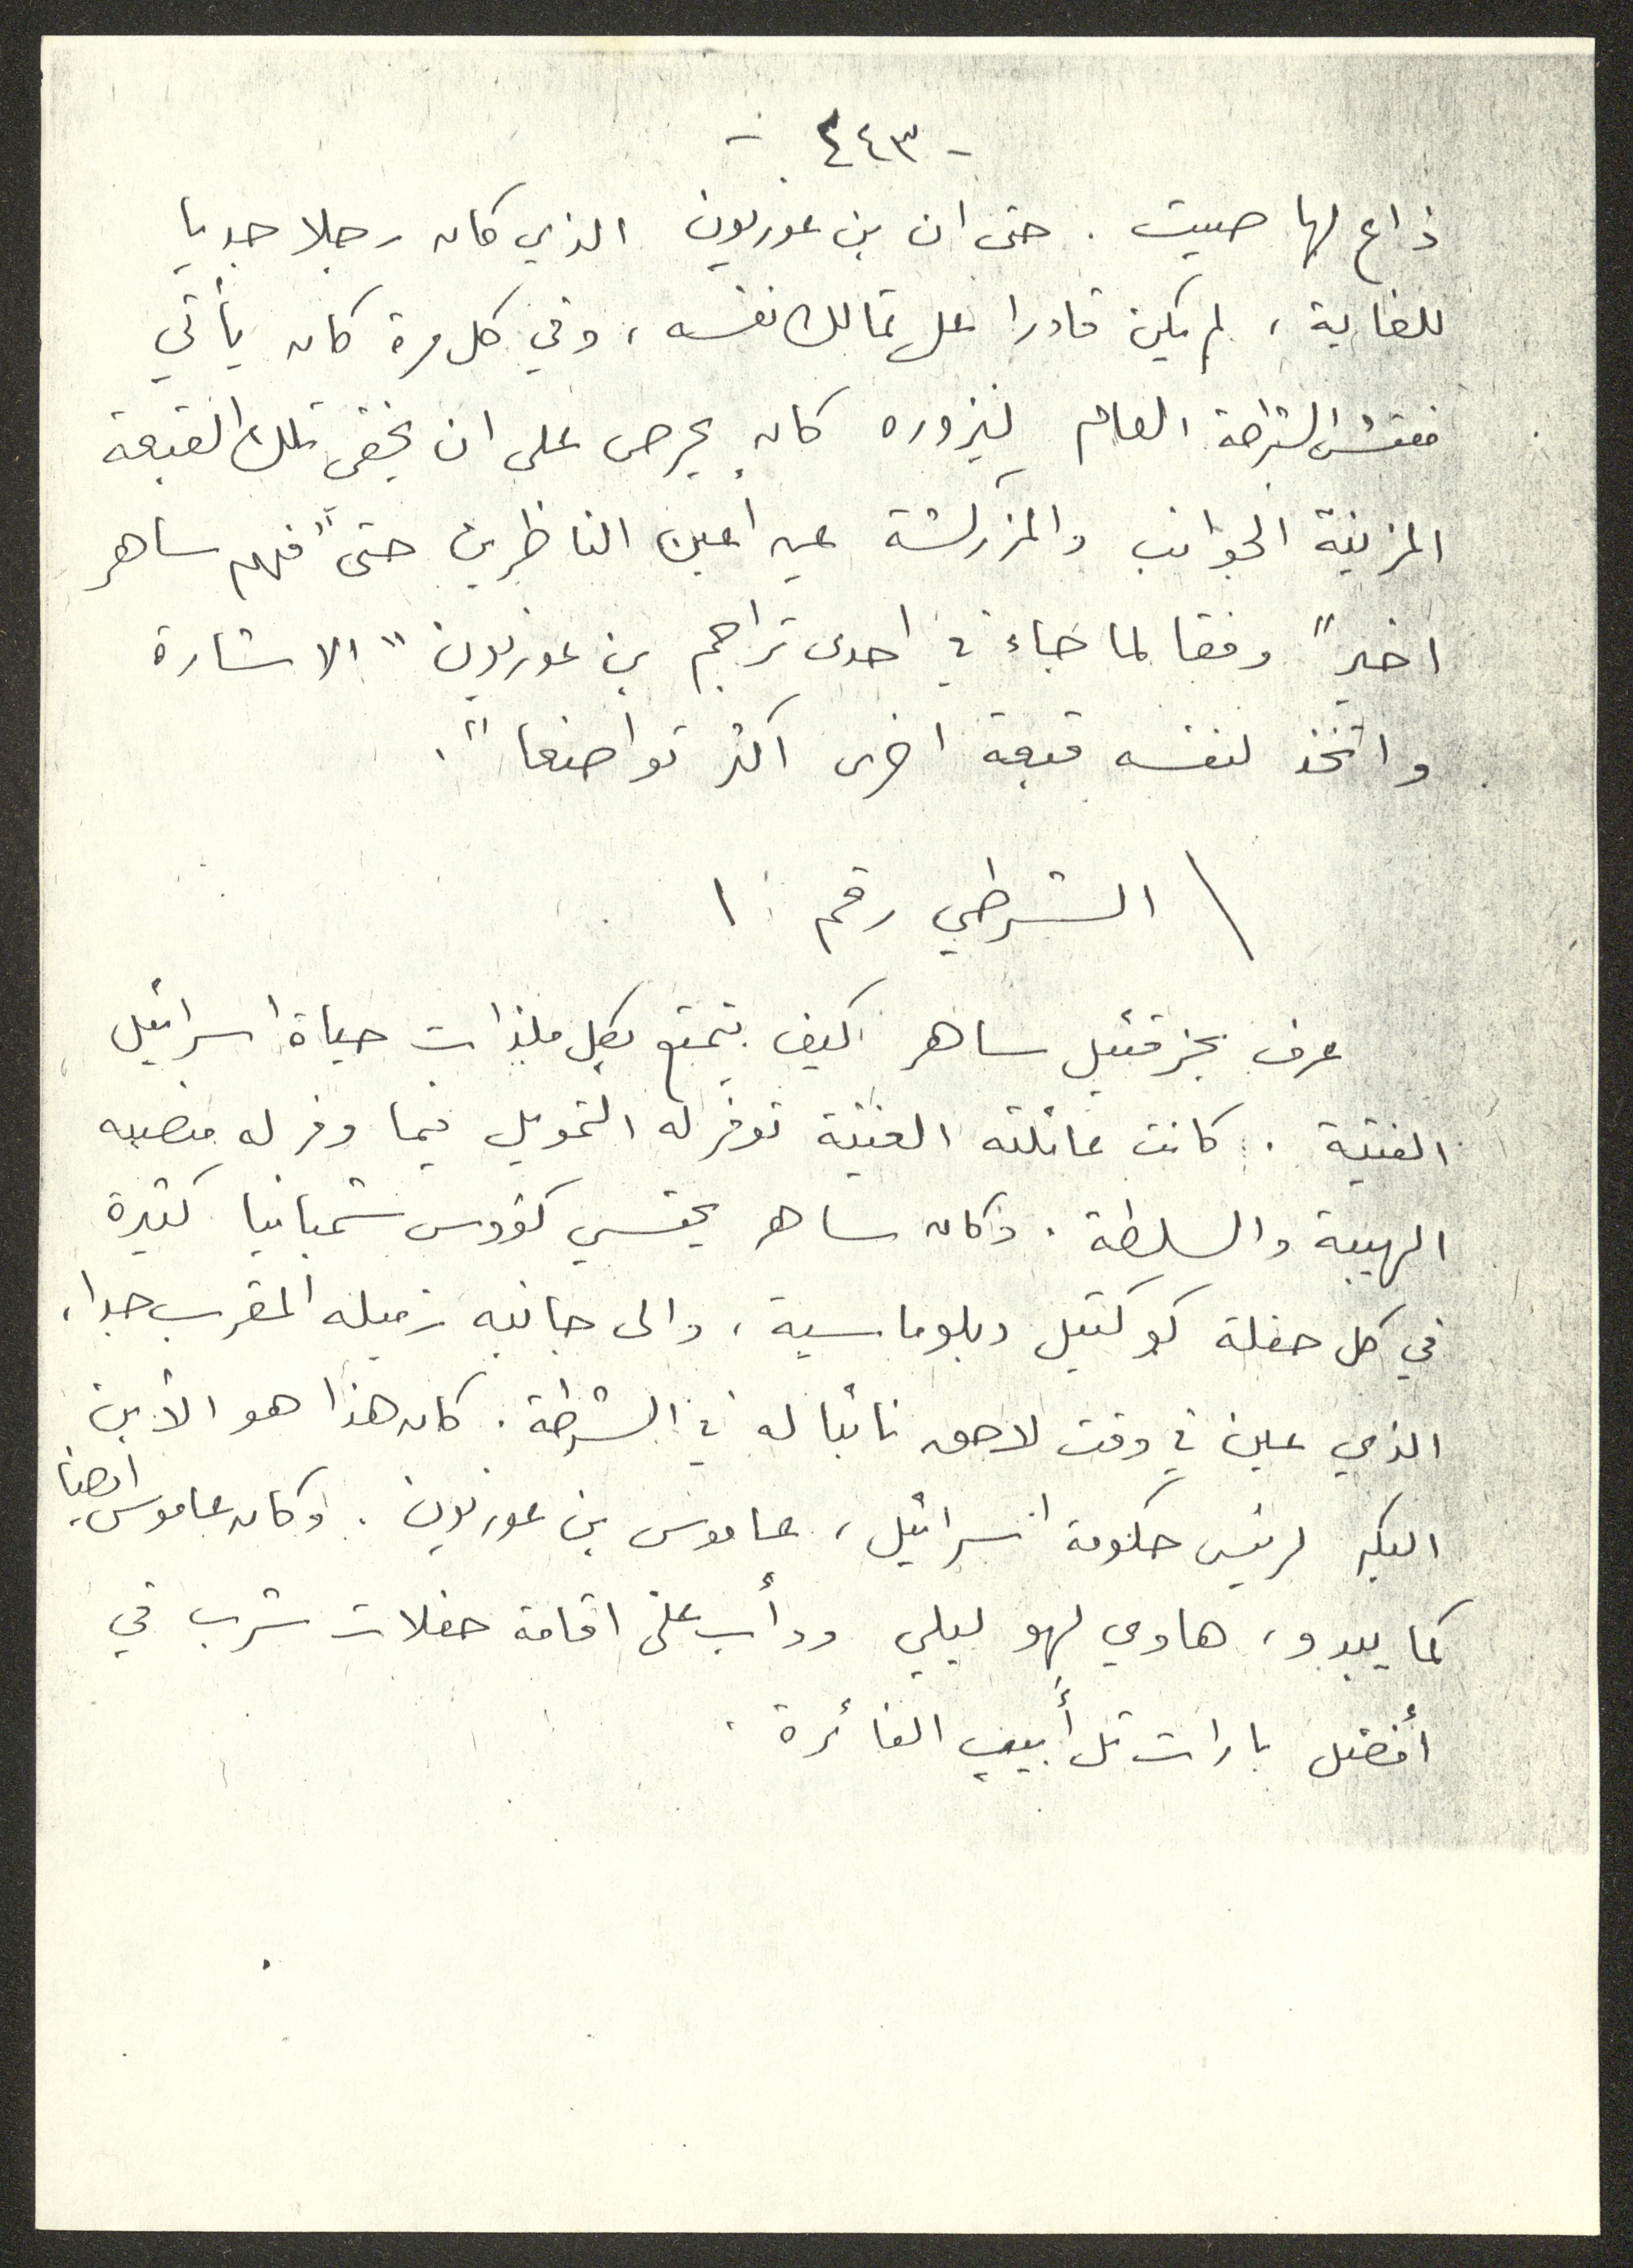 - ٤٤٣ -
ذاع لها صيت . حتى ان بن غوريون الذي كان رجلا جديا
للغاية ، لم يكن قادرا على تمالك نفسه ، وفي كل مرة كان يأتي
مفتش الشرطة العام ليزوره كان يحرص على ان يخفي تلك القبعة
المزينة الجوانب والمزركشة عن اعين الناظرين حتى " فهم ساهر
اخير" وفقا لما جاء في احدى تراجم بن غوريون " الاشارة
واتخذ لنفسه قبعة اخرى اكثر تواضعا " .
\ الشرطي رقم ١
عرف يحزقئيل ساهر كيف يتمتع بكل ملذات حياة اسرائيل
الفتية . كانت عائلته الغنية توفر له التمويل فيما وفر له منصبه
الهيبة والسلطة . وكان ساهر يحتسي كؤوس شمبانيا كثيرة
في كل حفلة كوكتيل دبلوماسية ، والى جانبه زميله المقرب جدا ،
الذي عين في وقت لاحق نائبا له في الشرطة . كان هذا هو الأبن
البكر لرئيس حكومة اسرائيل ، عاموس بن غوريون . وكان عاموس ايضا ،
كما يبدو ، هاوي لهو ليلي ودأب على اقامة حفلات شرب في
أفضل بارات تل أبيب الفائرة .